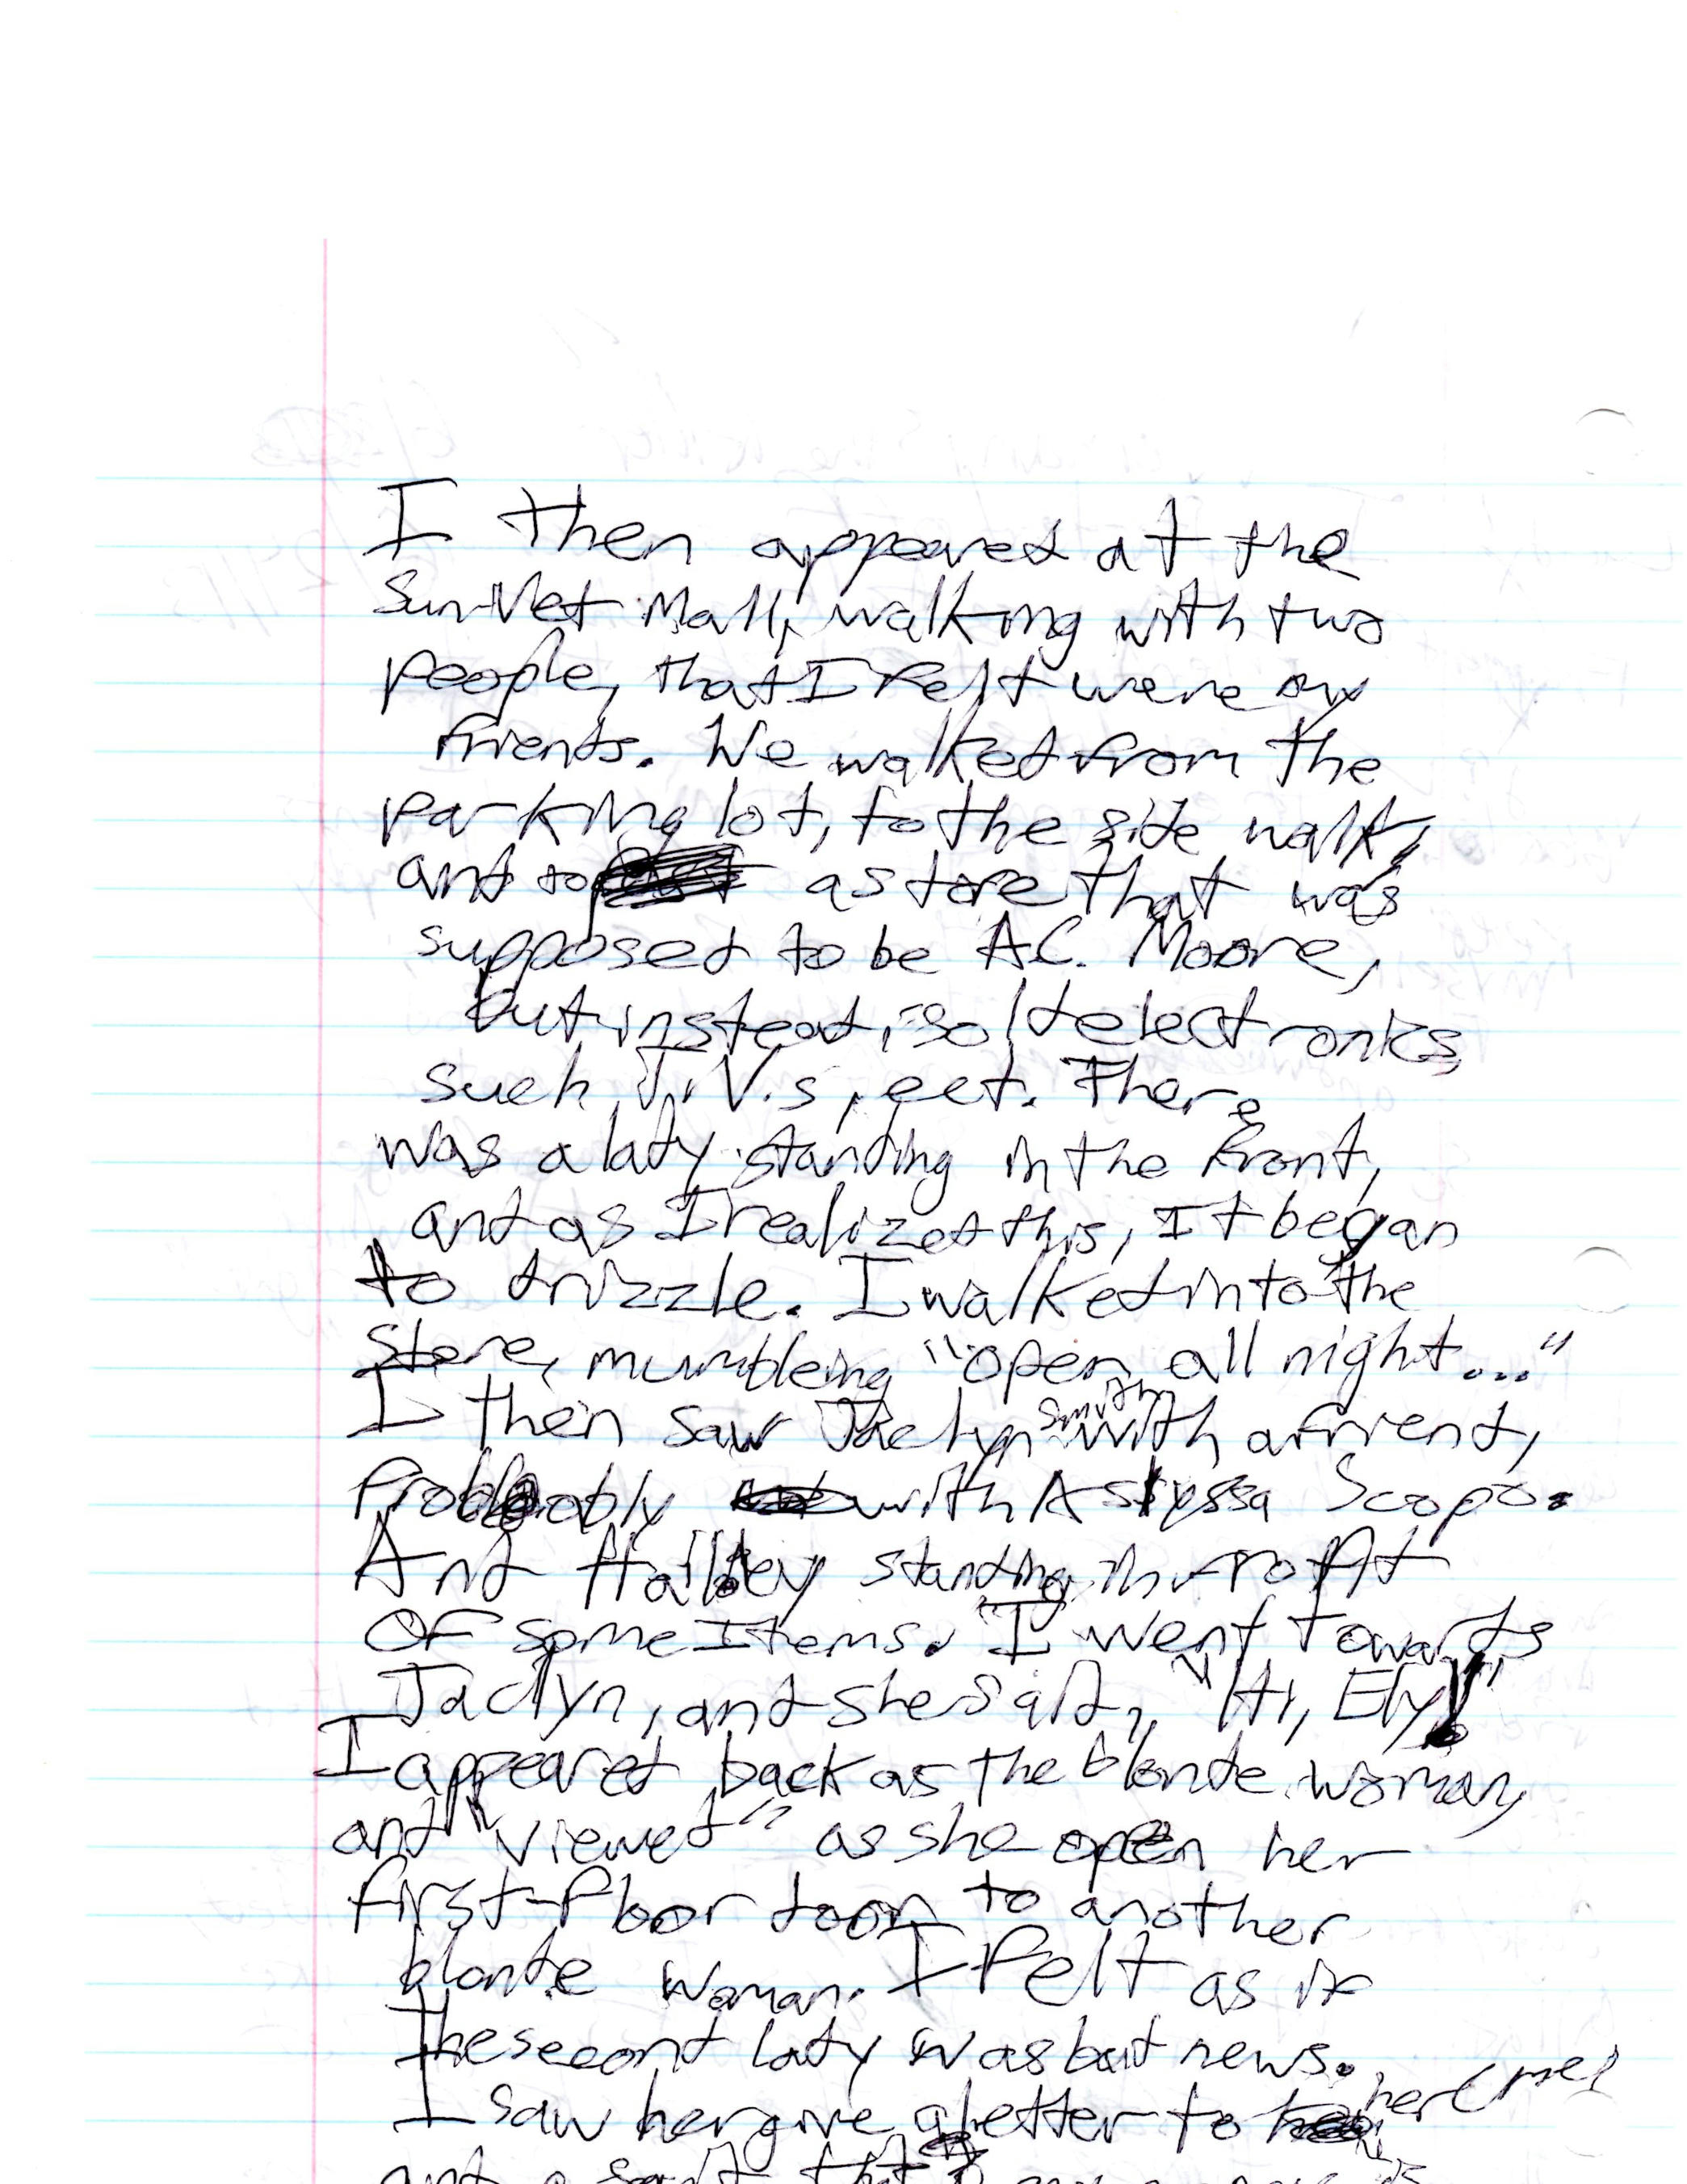 I then appeared at the
Sun-Vet Mall, walking with two
people, that I felt were my
friends. We walked from the
parking lot, to the side walk,
and to a store that was
supposed to be A.C. Moore,
but instead, sold electronics
such T.V.s, ect. There
was a lady standing in the front,
and as I realized this, It began
to drizzle. I walked into the
store, mumbleing "open all night..."
I then saw Jaclyn Smith with a friend,
Probbably with Alyssa Scopo.
And Hailey standing in front
OF some Items. I went Towards
Jaclyn, and she said, "Hi, Ely!"
I appeared back as the blonde woman,
and "viewed" as she open her
first-floor door to another
blonde woman. I felt as if
The second lady was bad news.
I saw her give a letter to her (me)